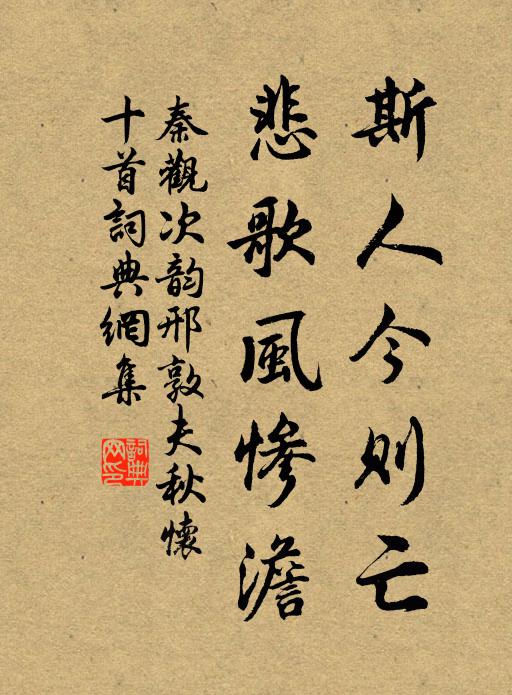 斯人今则亡
悲歌風惨澹
秦觀次韵邢敦夫秋懷
十首詞典網集
詞典网印